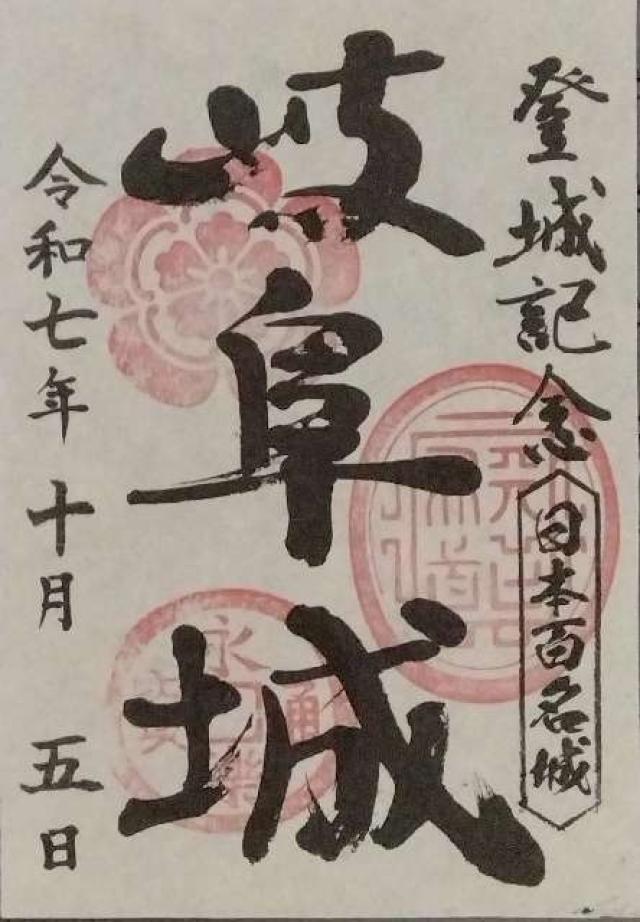 登城記念
日本百名城
岐阜城
令和七年十月五日
永樂通寳